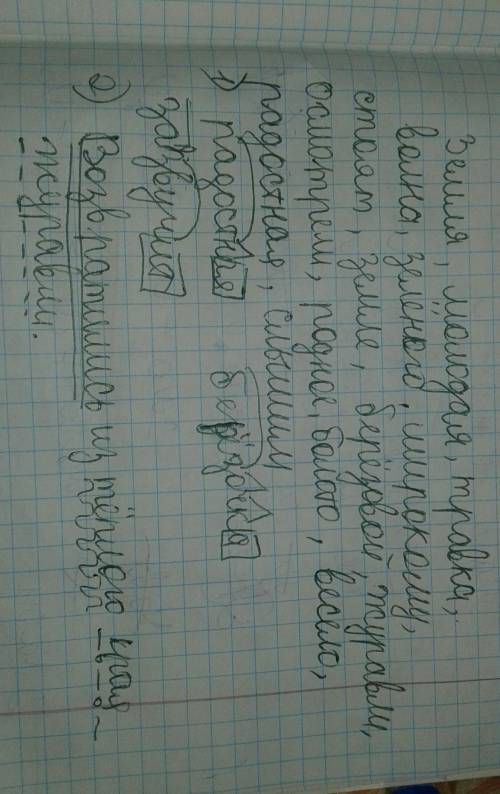 Земля, молодая, травка,
волна, зелёного, широкому,
стоят, земле, берёзовой, журавли,
осмотрели, родное, болото, весело,
радостная, слышим
1) радостная берёзовой
зазвучи
2) Возвратились из тёплого края
журавли.